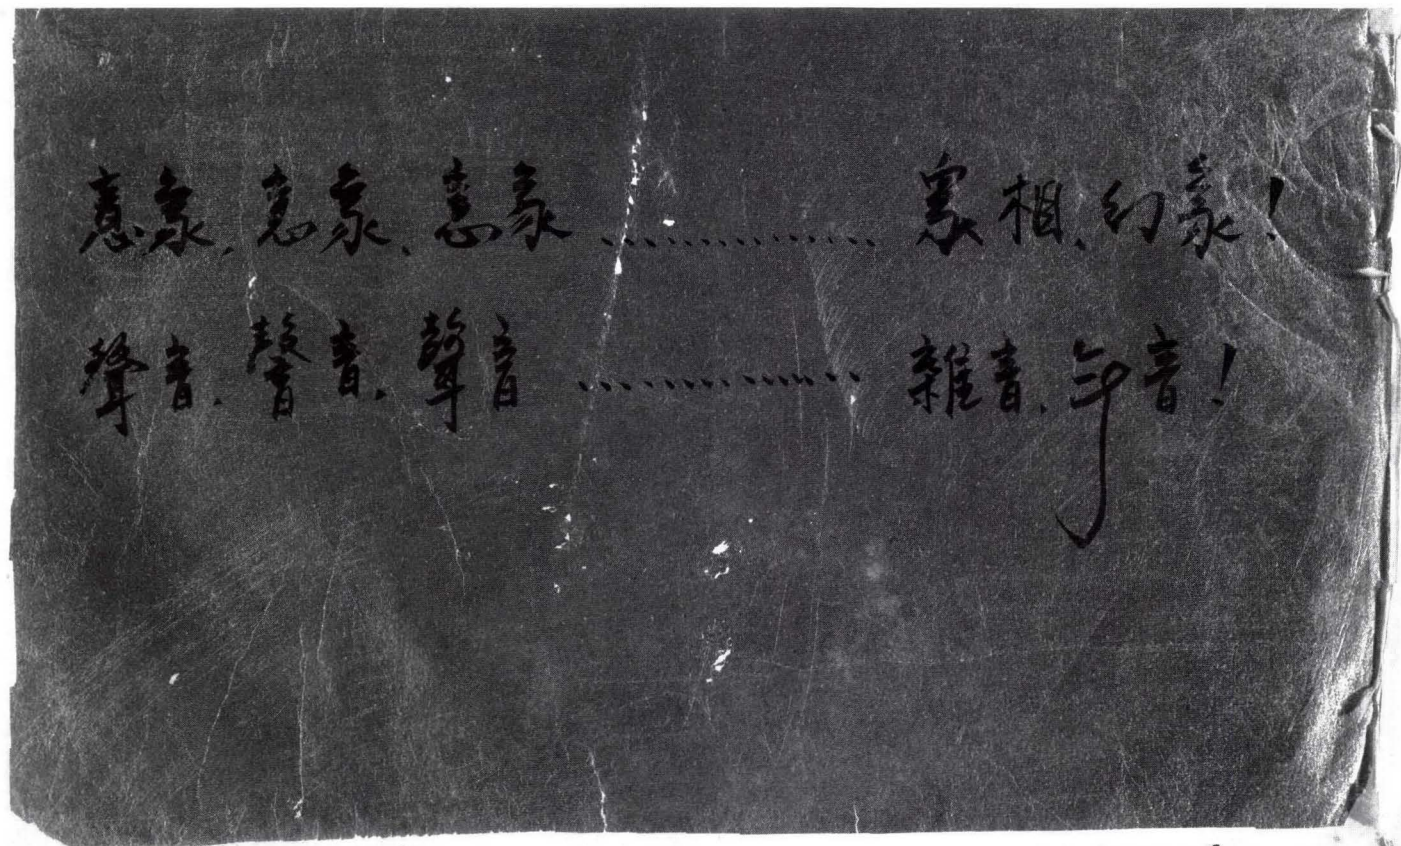 意象,意象,意象…………象相,幻象!
聲音,聲音,聲音…………雜音,年音!